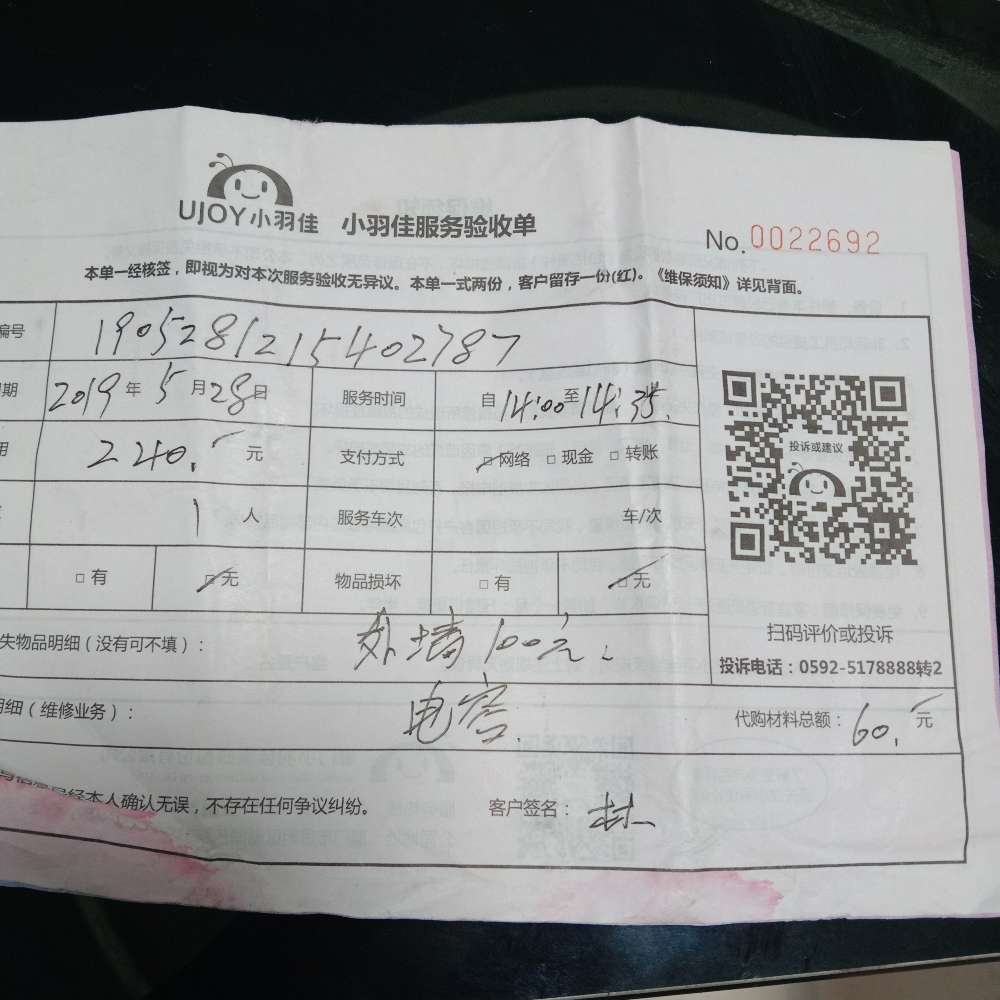 UJOY小羽佳 小羽佳服务验收单
No.0022692
本单一经核签，即视为对本次服务验收无异议。本单一式两份，客户留存一份(红)。《维保须知》详见背面。
编号 1905281215402787
期 2019年5月28日 服务时间 自14:00至14:35
用 240. 元 支付方式 网络 现金 转账
投诉或建议
1 人 服务车次 车/次
有 无 物品损坏 有 无
扫码评价或投诉
失物品明细（没有可不填）： 外墙100元
投诉电话：0592-5178888转2
明细（维修业务）： 电容 代购材料总额：60.元
经本人确认无误，不存在任何争议纠纷。 客户签名：